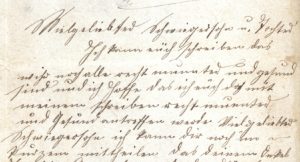 Vielgeliebter Schwiegersohn u. Tochter
Ich kann euch schreiben das
wir noch alle recht munter und gesund
sind und ich hoffe das ich euch mit
meinem schreiben recht munter
und Gesund antreffen werde Vielgeliebter
Schwiegersohn ich kann dir noch im
Kurzem mittheilen das deinem Onkel